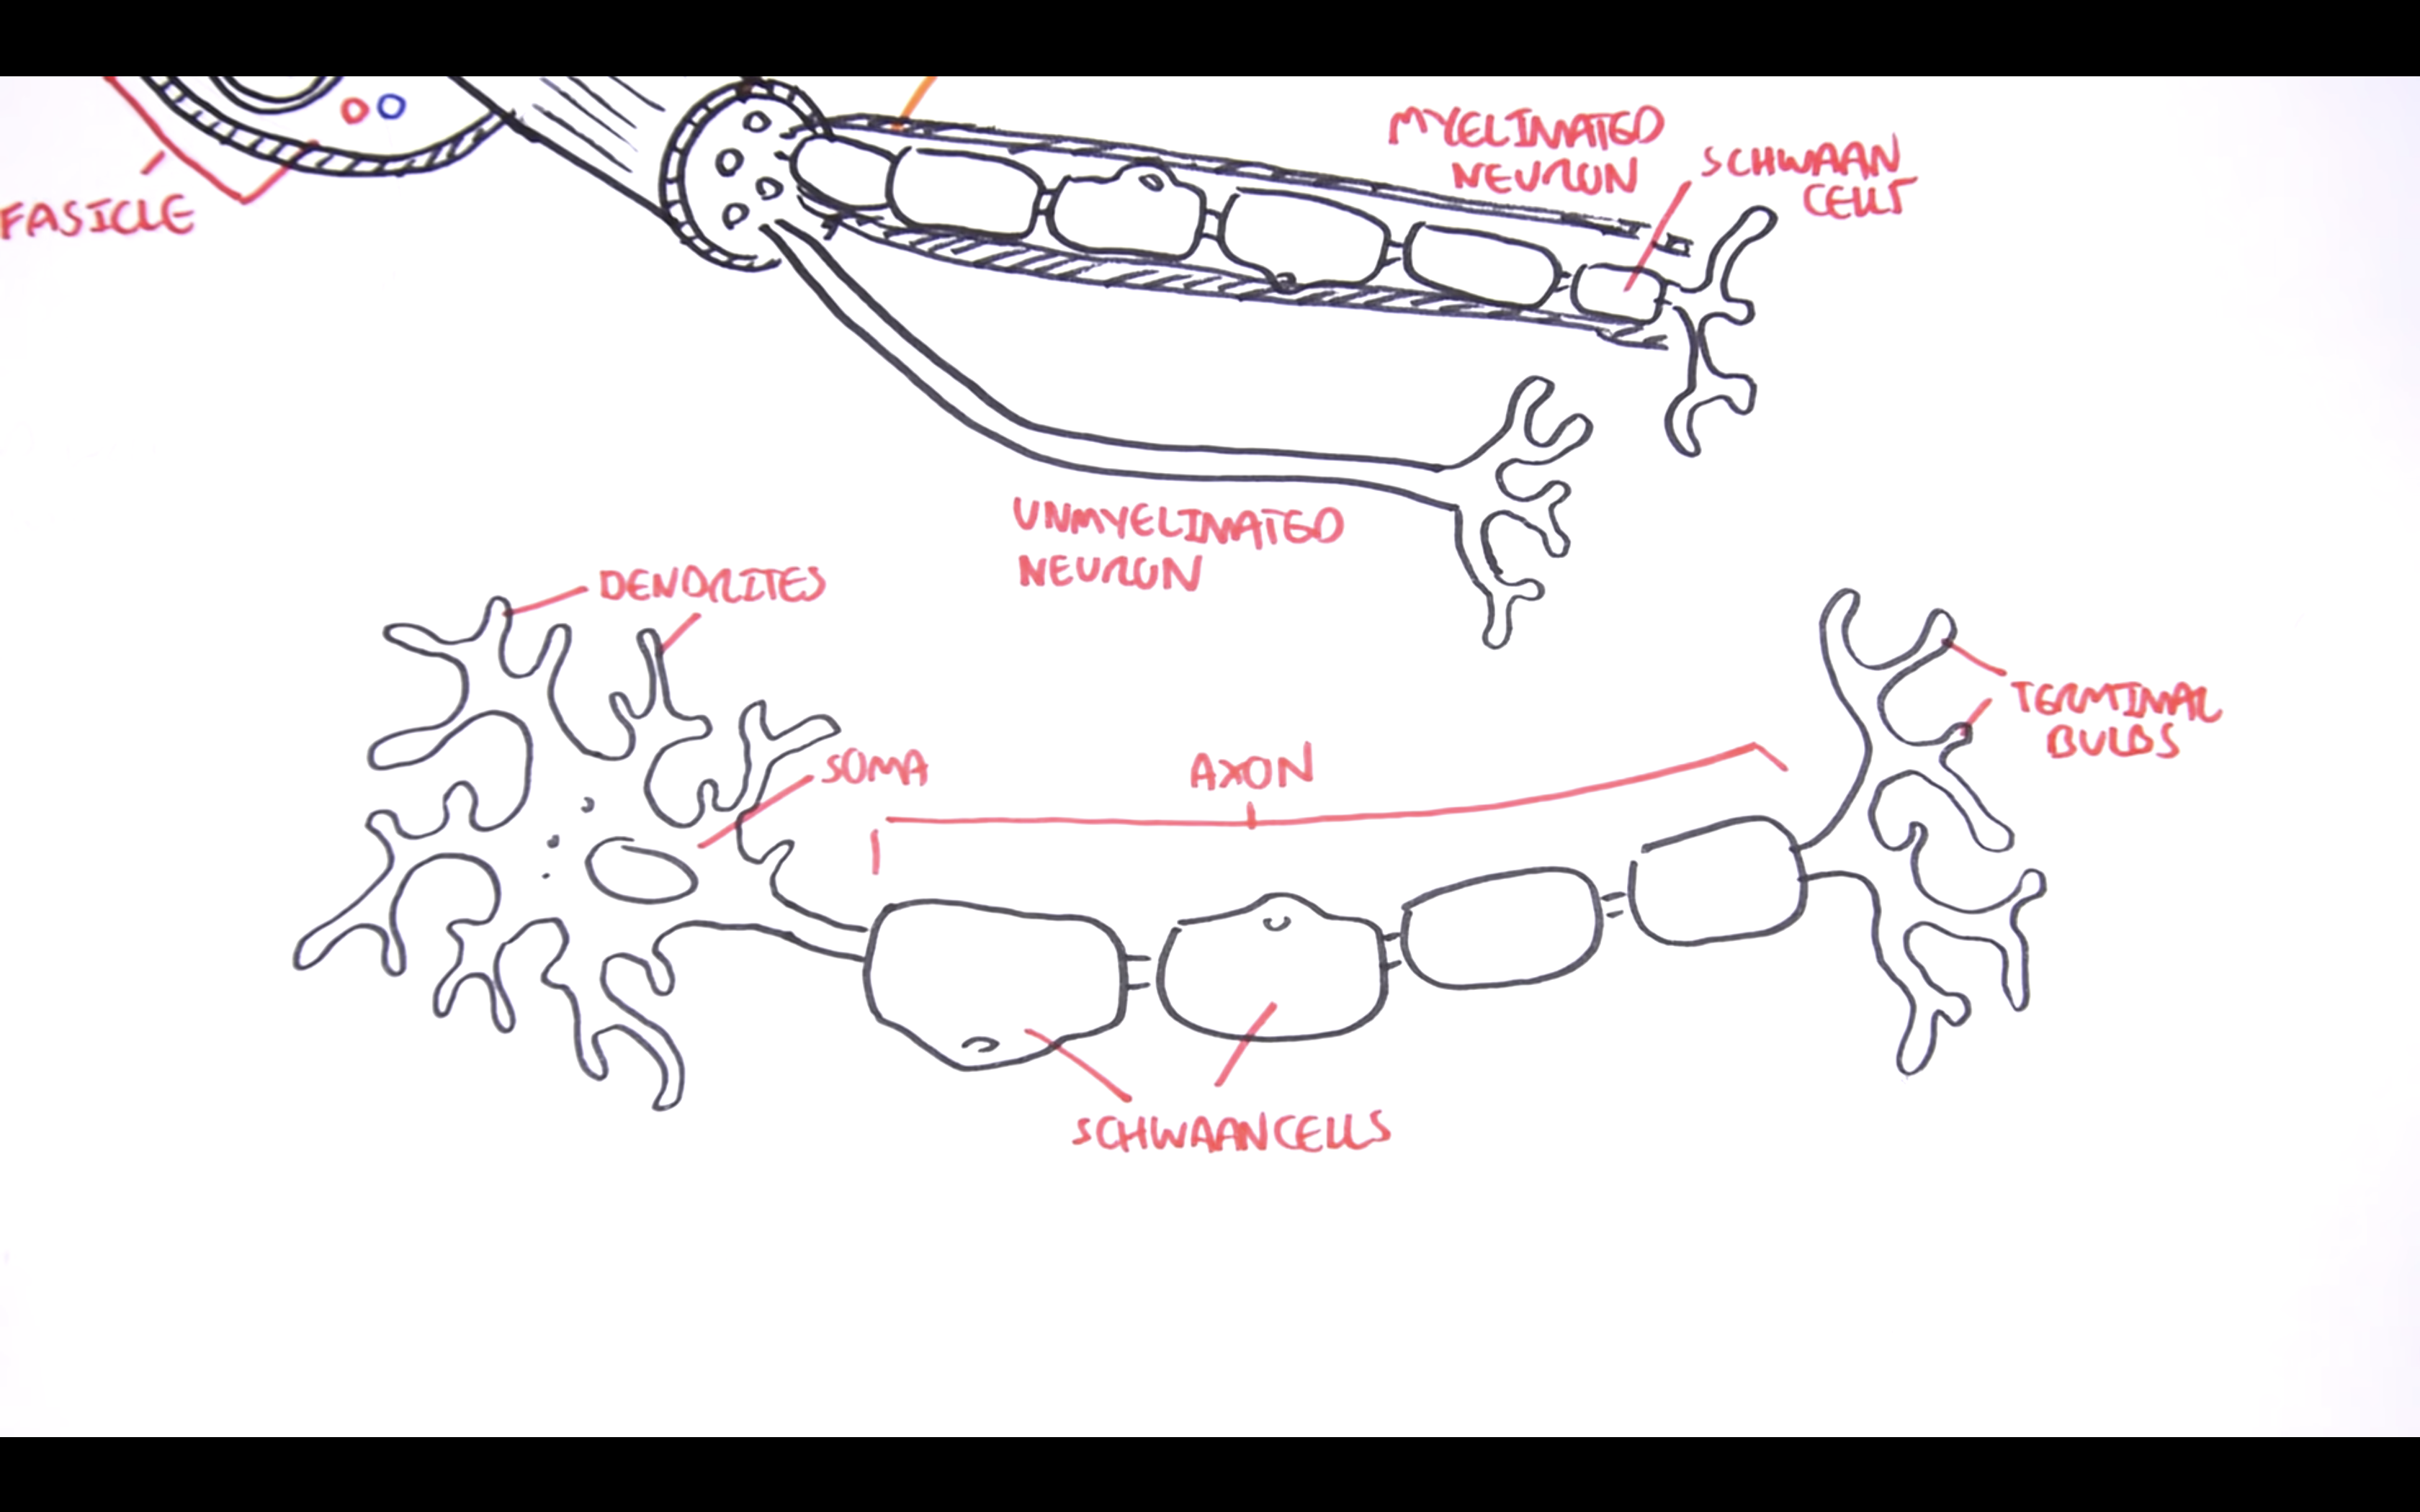 MYELINATED
NEURON
SCHWAAN
CELLS
FASICLE
UNMYELINATED
NEURON
DENDRITES
SOMA
AXON
TERMINAL
BULBS
SCHWAAN CELLS